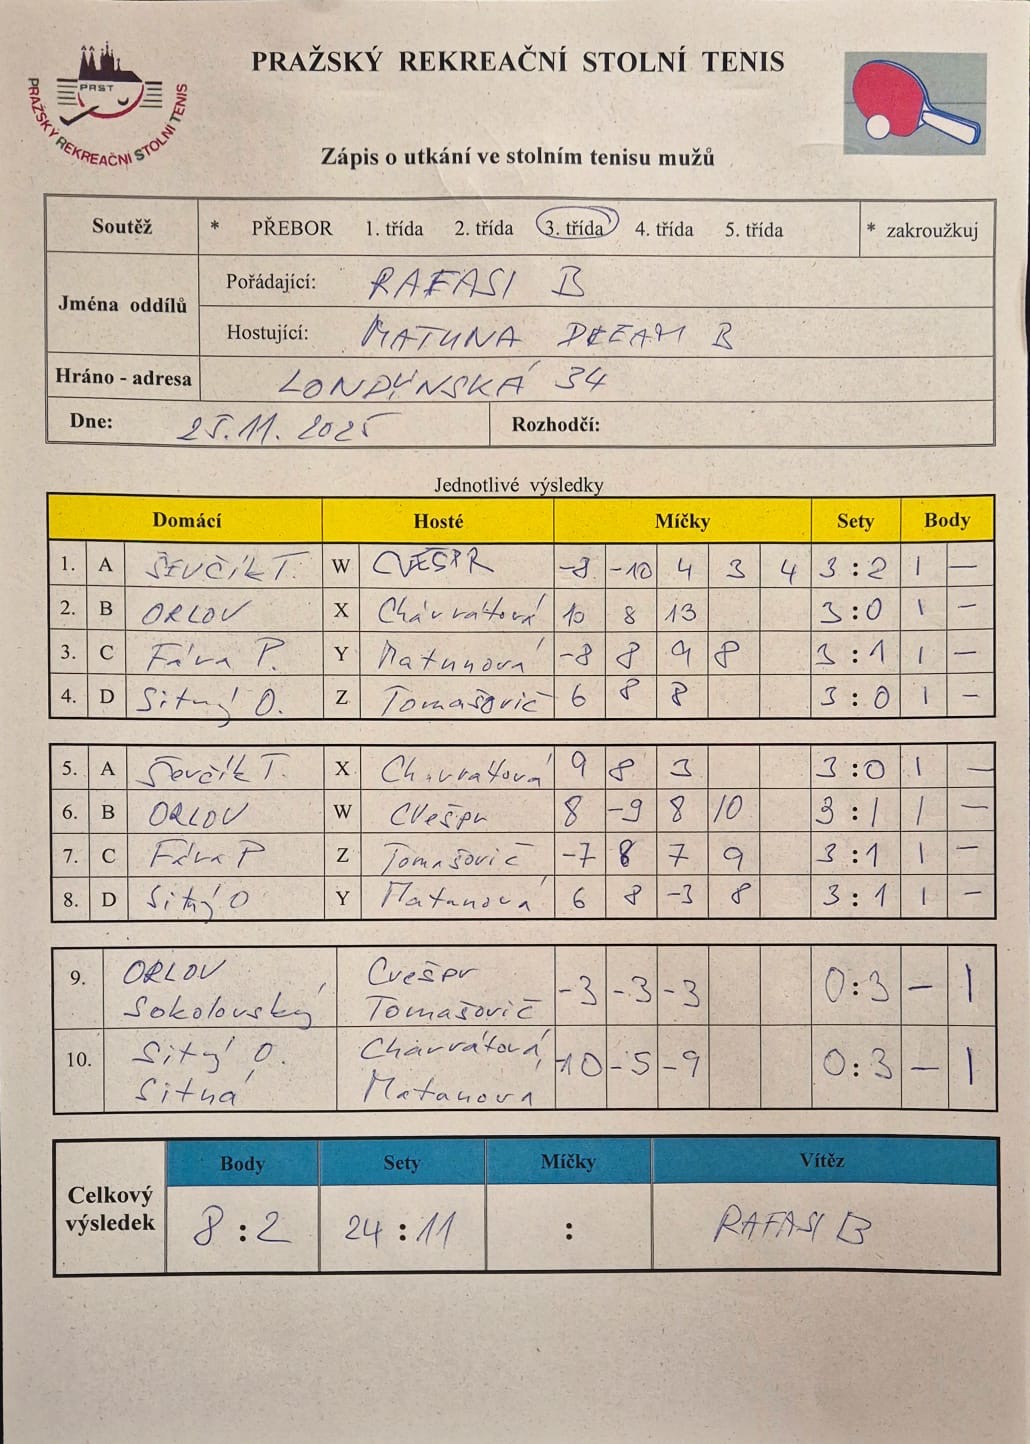 PRAŽSKÝ REKREAČNÍ STOLNÍ TENIS
PRST
PRAŽSKÝ REKREAČNÍ STOLNÍ TENIS
Zápis o utkání ve stolním tenisu mužů
Soutěž * PŘEBOR 1. třída 2. třída 3. třída 4. třída 5. třída * zakroužkuj
Jména oddílů
Pořádající: RAFASI B
Hostující: MATUNA DREAM B
Hráno - adresa LONDÝNSKÁ 34
Dne: 25.11. 2025 Rozhodčí:
Jednotlivé výsledky
Domácí Hosté Míčky Sety Body
1. A ŠEVČÍK T. W CVEŠPR -8 -10 4 3 4 3 : 2 1 —
2. B ORLOV X Charvátová 10 8 13 3 : 0 1 –
3. C Fára P. Y Matunová -8 8 9 8 3 : 1 1 —
4. D Sitný O. Z Tomašovič 6 8 8 3 : 0 1 –
5. A Ševčík T. X Charvátová 9 8 3 3 : 0 1 —
6. B ORLOV W Cvešpr 8 -9 8 10 3 : 1 1 —
7. C Fára P Z Tomašovič -7 8 7 9 3 : 1 1 –
8. D Sitný O Y Matanová 6 8 -3 8 3 : 1 1 –
9. ORLOV Cvešpr -3 -3 -3 0 : 3 — 1
Sokolovský Tomašovič
10. Sitý O. Charvátová -10 -5 -9 0 : 3 — 1
Sitná Matanova
Celkový výsledek
Body Sety Míčky Vítěz
8 : 2 24 : 11 : RAFASI B